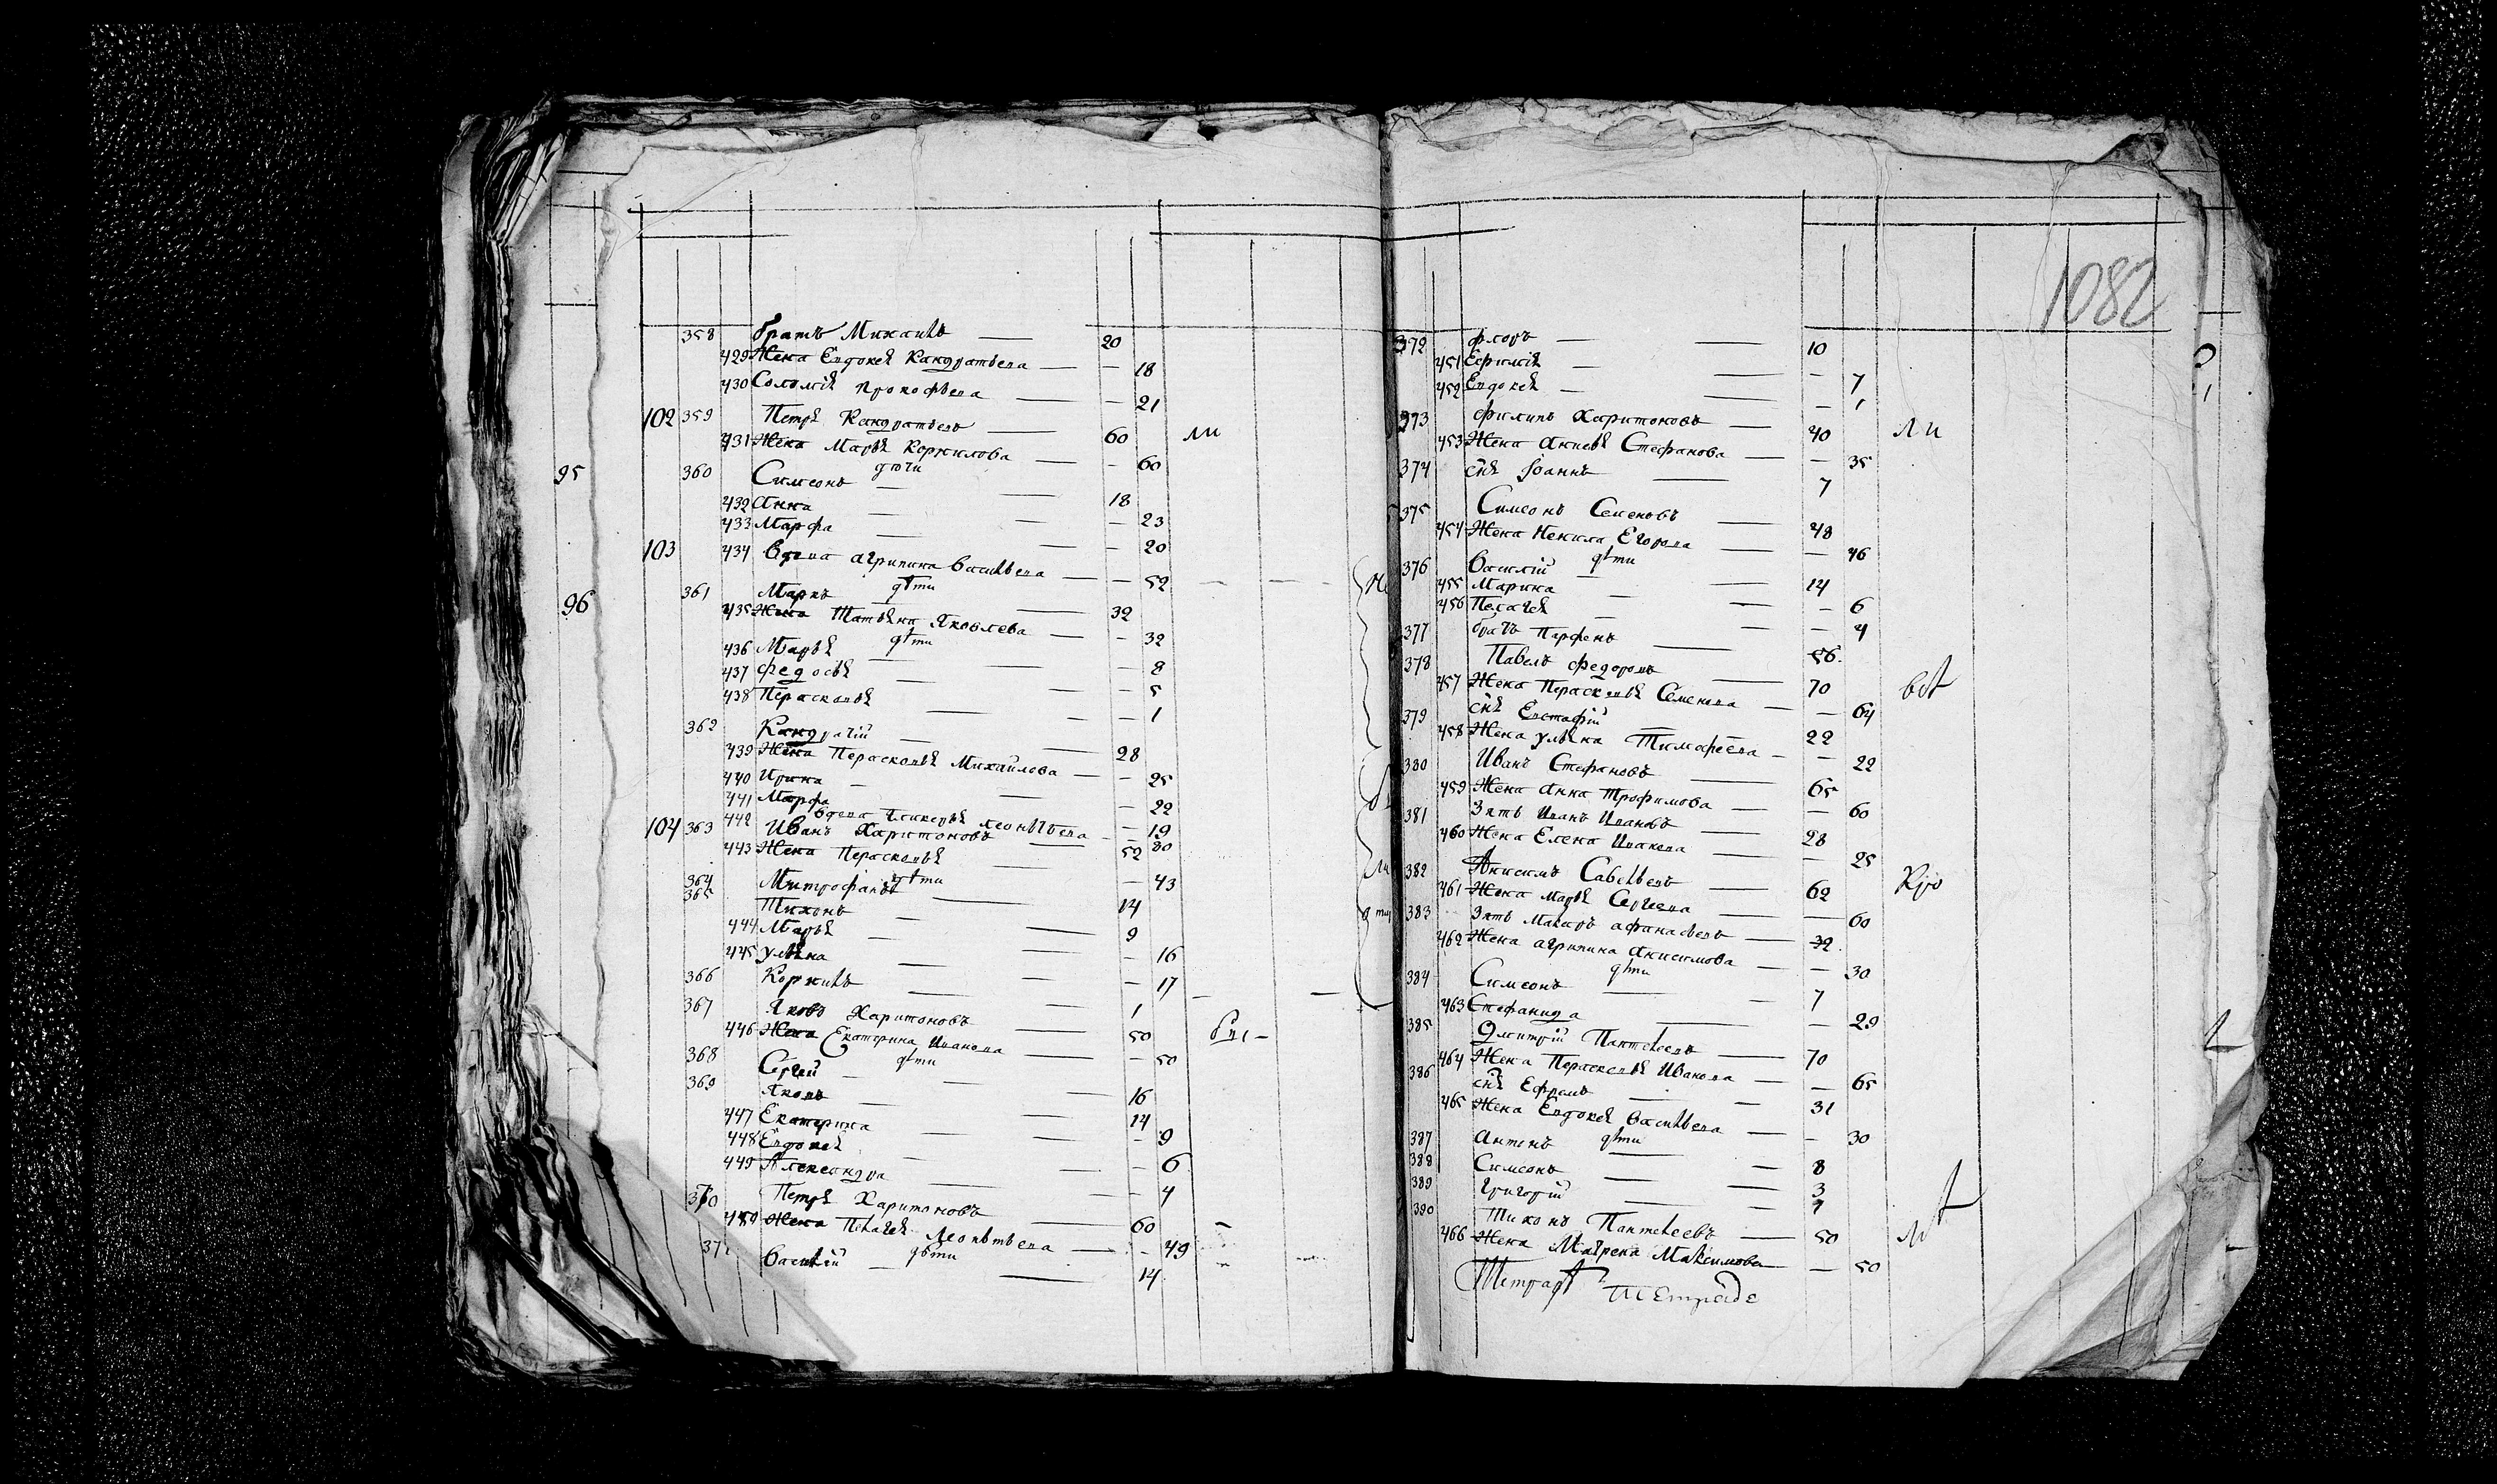 1082
358 братъ Михаилъ — 20
429 Жена Евдокея Кандратьева — — 18
430 Соломія Прокофьева — — 21
102 359 Петръ Кандратьевъ — 60 ли
431 Жена Марья Корнилова — — 60
дѣти
95 360 Симеонъ — 18
432 Анна — — 23
433 Марфа — — 20
103 434 Вдова Агрипина Васильева — — 52
дѣти
96 361 Маркъ — 32
435 Жена Татьяна Яковлева — — 32
дѣти
436 Марья — — 8
437 Федосья — — 5
438 Парасковья — — 1
362 Кандратій — 28
439 Жена Парасковья Михайлова — — 25
440 Ирина — — 22
441 Марфа — — 19
442 вдова Гликерья Леонтьева — — 80
104 363 Иванъ Харитоновъ — 52
443 Жена Парасковья — — 43
дѣти
364 Митрофанъ — 14
365 Тихонъ — 9
444 Марья — — 16
445 Ульяна — — 17
366 Корнилъ — 1
367 Яковъ Харитоновъ — 50
446 Жена Екатерина Иванова — — 50
дѣти
368 Сергей — 16
369 Яковъ — 14
447 Екатерина — — 9
448 Евдокея — — 6
449 Александра — — 4
370 Петръ Харитоновъ — 60
450 Жена Пелагея Леонтьева — — 49
дѣти
371 Василій — 14
372 Флоръ — 10
451 Ефимія — — 7
452 Евдокея — — 1
373 Филипъ Харитоновъ — 40 ли
453 Жена Анисья Стефанова — — 35
374 снъ Іоаннъ — 7
375 Симеонъ Семеновъ — 48
454 Жена Ненила Егорова — — 46
дѣти
376 Василій — 14
455 Марина — — 6
456 Пелагея — — 4
377 братъ Парфенъ — 56
378 Павелъ Федоровъ — 70
457 Жена Парасковья Семенова — — 64
379 снъ Евстафій — 22
458 Жена Ульяна Тимофеева — — 22
380 Иванъ Стефановъ — 65
459 Жена Анна Трофимова — — 60
381 Зять Иванъ Ивановъ — 28
460 Жена Елена Иванова — — 25
382 Анисимъ Савельевъ — 62
461 Жена Марья Сергеева — — 60
383 Зять Макаръ Афанасьевъ — 32
462 Жена Агрипина Анисимова — — 30
дѣти
384 Симеонъ — 7
463 Стефанида — — 29
385 Дмитрій Пантелеевъ — 70
464 Жена Парасковья Иванова — — 65
386 снъ Ефремъ — 31
465 Жена Евдокея Васильева — — 30
дѣти
387 Антонъ — 8
388 Симеонъ — 3
389 Григорій — 7
390 Тихонъ Пантелеевъ — 50
466 Жена Матрена Максимова — — 50